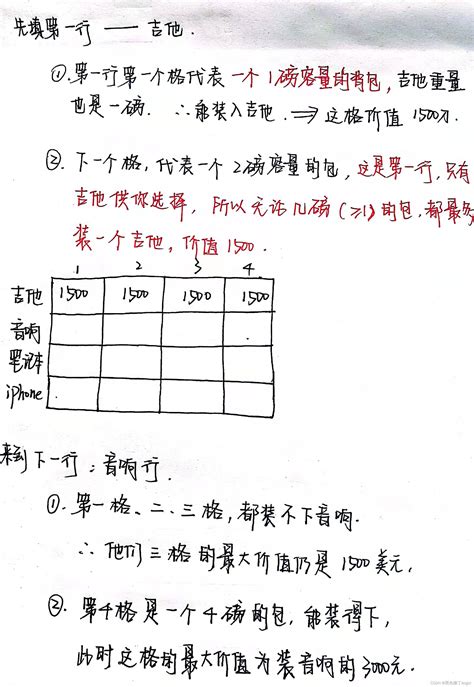 先填第一行 —— 吉他.
①.第一行第一个格代表一个1磅容量的背包,吉他重量
也是一磅. ∴能装入吉他. ⟹ 这格价值1500刀.
②.下一个格,代表一个2磅容量的包,这是第一行,只有
吉他供你选择,所以无论几磅(≥1)的包,都最多
装一个吉他,价值1500.
1 2 3 4
吉他 1500 1500 1500 1500
音响
笔记本
iphone
来到下一行:音响行.
①.第一格、二、三格,都装不下音响.
∴他们三格的最大价值仍是1500美元.
②.第4格是一个4磅的包,能装得下,
此时这格的最大价值为装音响的3000元.